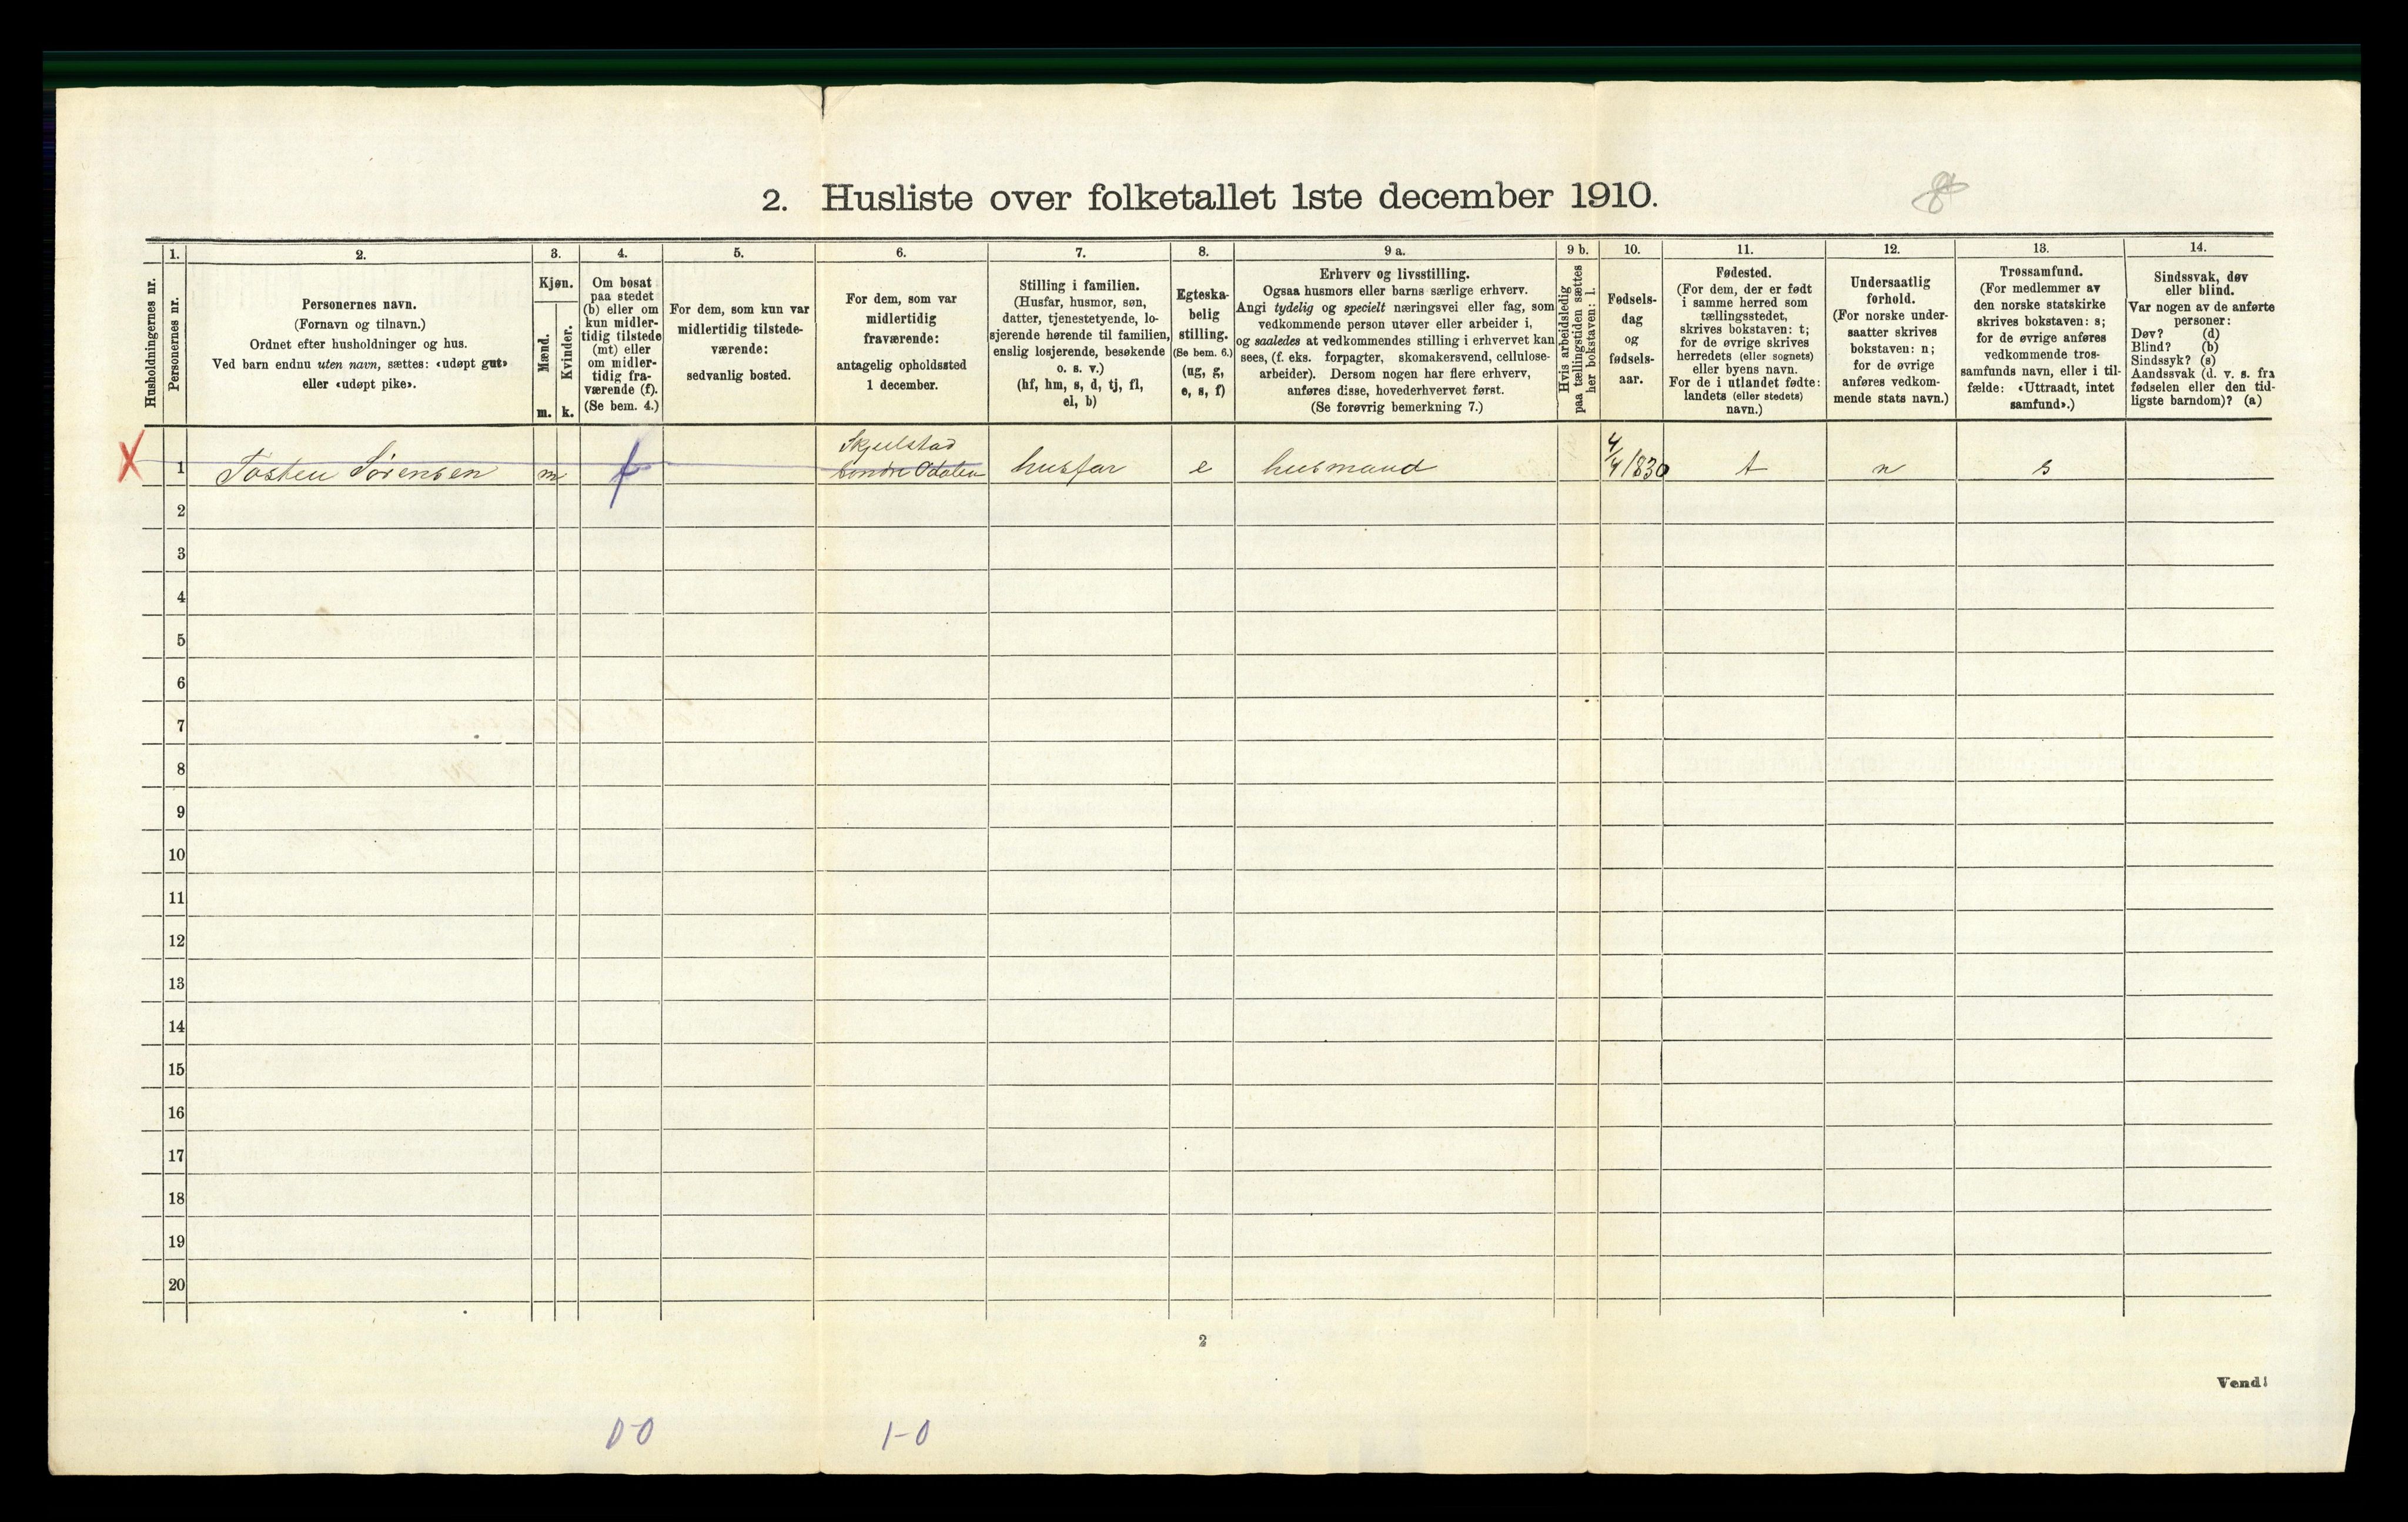 2. Husliste over folketallet 1ste december 1910.
8
Husholdningernes nr.
1.
Personernes nr.
2.
Personernes navn.
(Fornavn og tilnavn.)
Ordnet efter husholdninger og hus.
Ved barn endnu uten navn, sættes: «udøpt gut»
eller «udøpt pike».
3.
Kjøn.
Mænd.
m.
Kvinder.
k.
4.
Om bosat
paa stedet
(b) eller om
kun midler-
tidig tilstede
(mt) eller
om midler-
tidig fra-
værende (f).
(Se bem. 4.)
5.
For dem, som kun var
midlertidig tilstede-
værende:
sedvanlig bosted.
6.
For dem, som var
midlertidig
fraværende:
antagelig opholdssted
1 december.
7.
Stilling i familien.
(Husfar, husmor, søn,
datter, tjenestetyende, lo-
sjerende hørende til familien,
enslig losjerende, besøkende
o. s. v.)
(hf, hm, s, d, tj, fl,
el, b)
8.
Egteska-
belig
stilling.
(Se bem. 6.)
(ug, g,
e, s, f)
9 a.
Erhverv og livsstilling.
Ogsaa husmors eller barns særlige erhverv.
Angi tydelig og specielt næringsvei eller fag, som
vedkommende person utøver eller arbeider i,
og saaledes at vedkommendes stilling i erhvervet kan
sees, (f. eks. forpagter, skomakersvend, cellulose-
arbeider). Dersom nogen har flere erhverv,
anføres disse, hovederhvervet først.
(Se forøvrig bemerkning 7.)
9 b.
Hvis arbeidsledig
paa tællingstiden sættes
her bokstaven: l.
10.
Fødsels-
dag
og
fødsels-
aar.
11.
Fødested.
(For dem, der er født
i samme herred som
tællingsstedet,
skrives bokstaven: t;
for de øvrige skrives
herredets (eller sognets)
eller byens navn.
For de i utlandet fødte:
landets (eller stedets)
navn.)
12.
Undersaatlig
forhold.
(For norske under-
saatter skrives
bokstaven: n;
for de øvrige
anføres vedkom-
mende stats navn.)
13.
Trossamfund.
(For medlemmer av
den norske statskirke
skrives bokstaven: s;
for de øvrige anføres
vedkommende tros-
samfunds navn, eller i til-
fælde: «Uttraadt, intet
samfund».)
14.
Sindssvak, døv
eller blind.
Var nogen av de anførte
personer:
Døv? (d)
Blind? (b)
Sindssyk? (s)
Aandssvak (d. v. s. fra
fødselen eller den tid-
ligste barndom)? (a)
X 1 Tosten Sørensen m f Skjulstad Søndre Odalen husfar e husmand 4/4 1830 t n s
2
3
4
5
6
7
8
9
10
11
12
13
14
15
16
17
18
19
20
2
Vend!
0-0 1-0